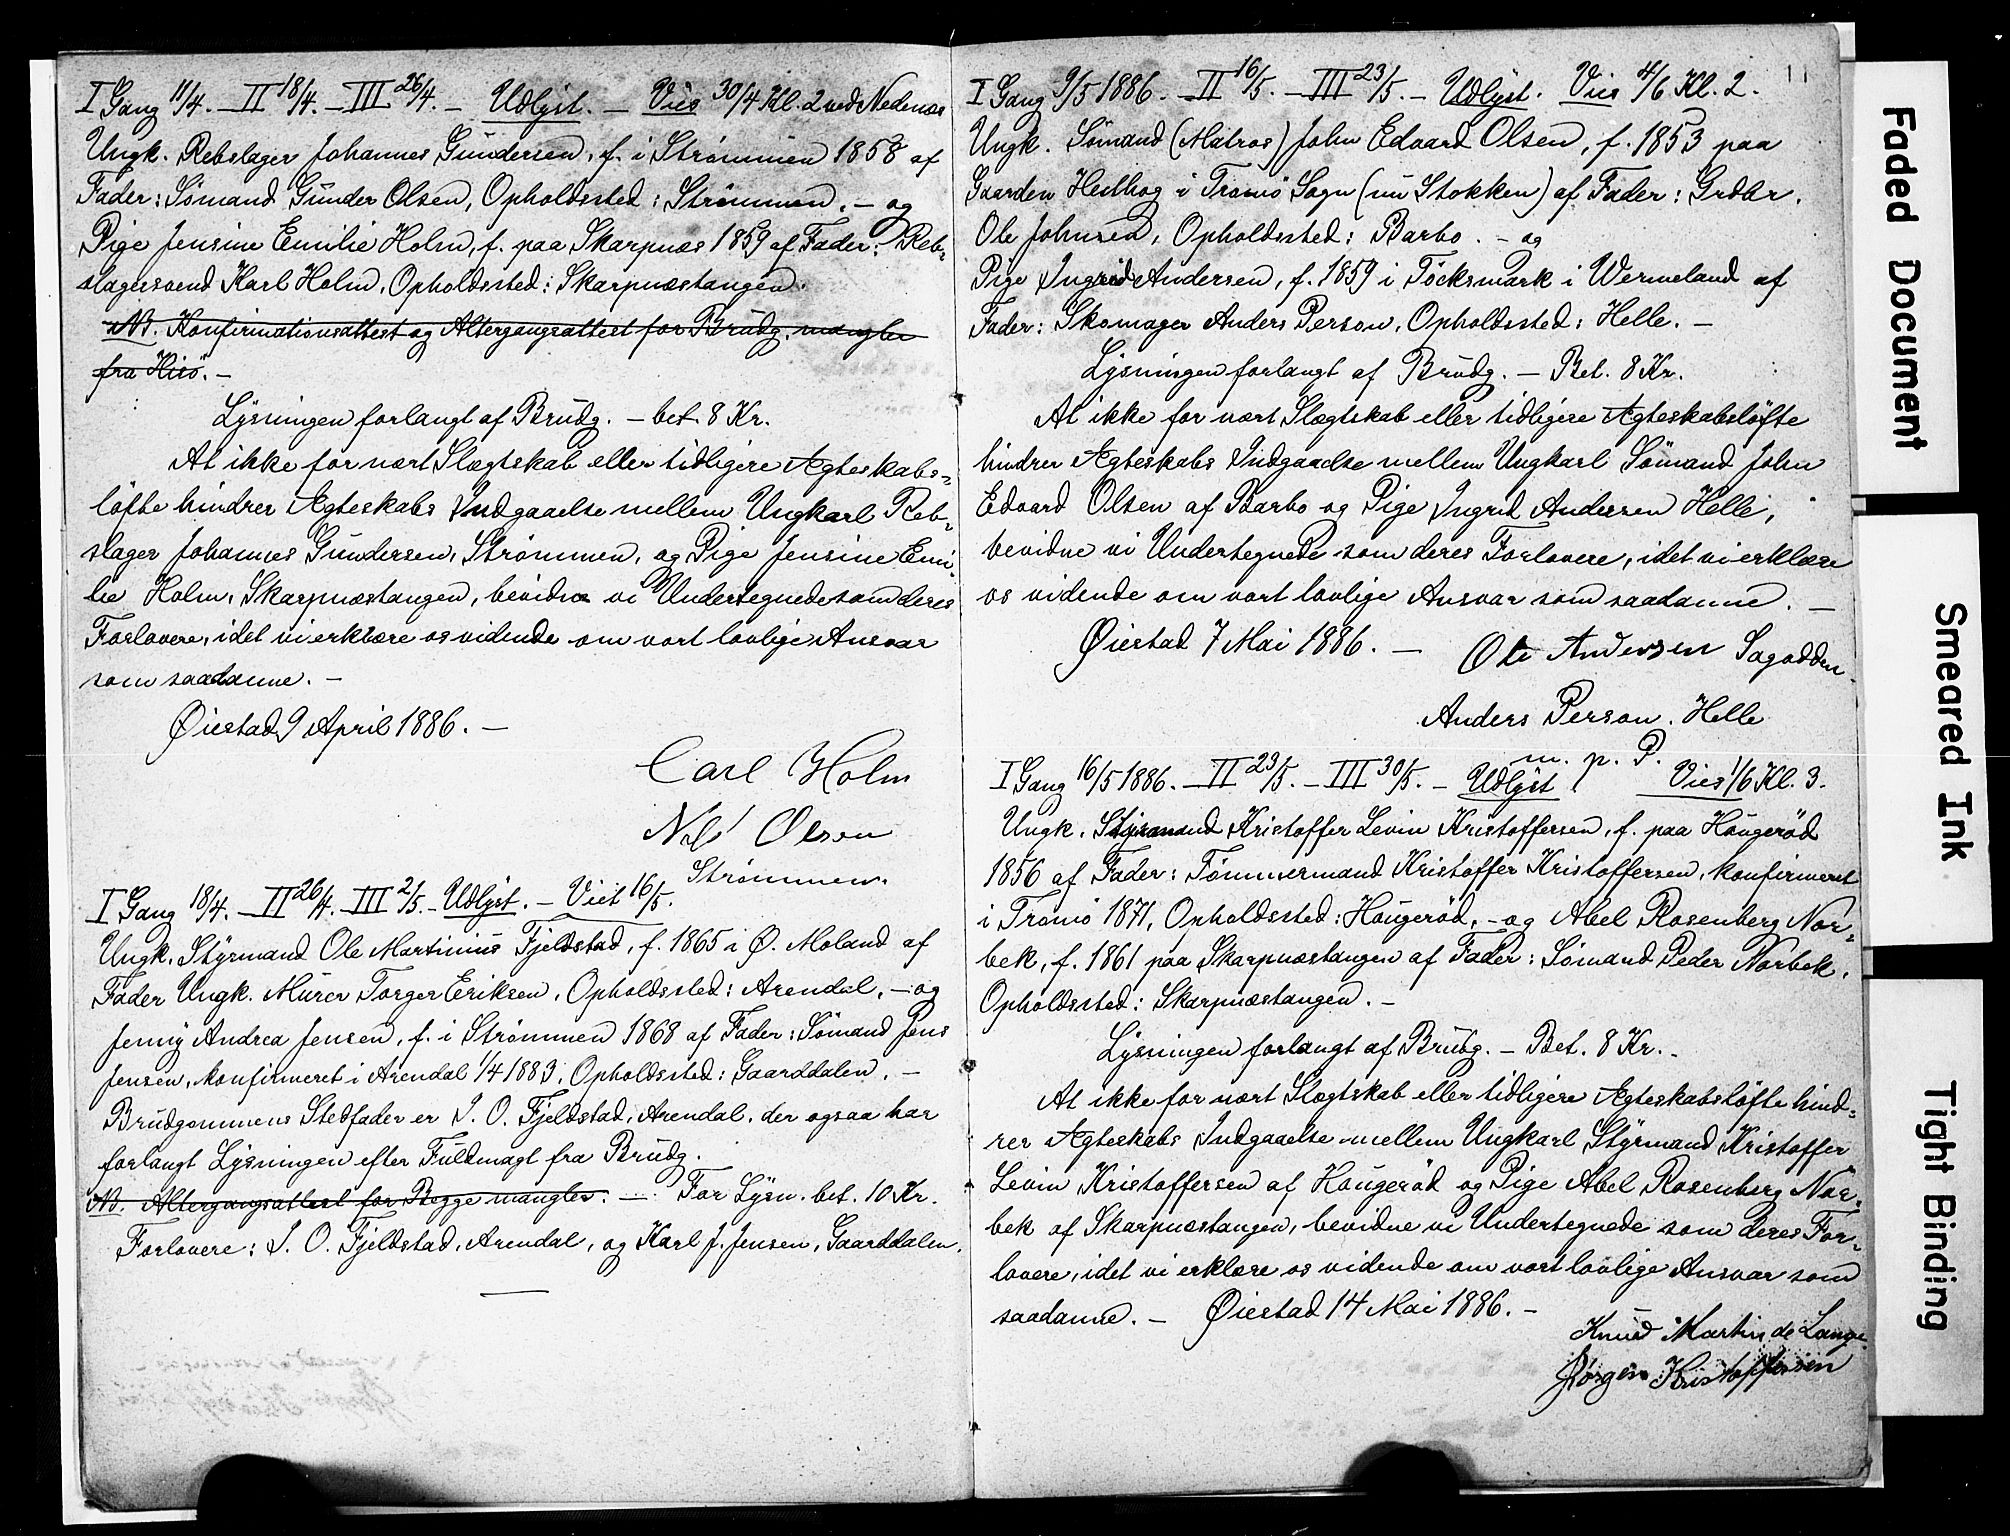 I Gang 11/4. – II 18/4. – III 26/4. – Udlyst. – Vies 30/4 Kl. 2 ved Nedenæs
Ungk. Rebslager Johannes Gundersen, f. i Strømmen 1858 af
Fader: Sømand Gunder Olsen, Opholdssted: Strømmen. – og
Pige Jensine Emilie Holm, f. paa Skarpnæs 1859 af Fader: Reb-
slagersvend Karl Holm, Opholdssted: Skarpnæstangen.
NB. Konfirmationsattest og Altergangsattest for Brudg. mangler
fra Hisö. –
Lysningen forlangt af Brudg. – bet. 8 Kr.
At ikke for nært Slægtskab eller tidligere Ægteskabs-
löfte hindrer Ægteskabs Indgaaelse mellem Ungkarl Reb-
slager Johannes Gundersen, Strømmen, og Pige Jensine Emi-
lie Holm, Skarpnæstangen, bevidne vi Undertegnede som deres
Forlovere, idet vi erklære os vidende om vort lovlige Ansvar
som saadanne. –
Øiestad 9 April 1886. –
Carl Holm
Nils Olsen
Strømmen.
I Gang 18/4. – II 26/4. – III 2/5. – Udlyst. – Viet 16/5.
Ungk. Styrmand Ole Martinius Fjeldstad, f. 1865 i Ø. Moland af
Fader Ungk. Murer Torger Eriksen, Opholdssted: Arendal. – og
Jenny Andrea Jensen, f. i Strømmen 1868 af Fader: Sømand Jens
Jensen, konfirmeret i Arendal 1/4 1883, Opholdssted: Gaarddalen. –
Brudgommens Stedfader er I. O. Fjeldstad, Arendal, der ogsaa har
forlangt Lysningen efter Fuldmagt fra Brudg.
NB. Altergangsattest for Begge mangler. – For Lysn. bet. 10 Kr.
Forlovere: I. O. Fjeldstad, Arendal, og Karl J. Jensen, Gaarddalen.
11
I Gang 9/5 1886. – II 16/5. – III 23/5. – Udlyst. Vies 4/6 Kl. 2.
Ungk. Sømand (Matros) John Edvard Olsen, f. 1853 paa
Gaarden Hedbog i Tromö Sogn (nu Stokken) af Fader: Grdbr.
Ole Johnsen, Opholdssted: Barbo. – og
Pige Ingrid Andersen, f. 1859 i Töcksmark i Wermeland af
Fader: Skomager Anders Person, Opholdssted: Helle. –
Lysningen forlangt af Brudg. – Bet. 8 Kr.
At ikke for nært Slægtskab eller tidligere Ægteskabslöfte
hindrer Ægteskabs Indgaaelse mellem Ungkarl Sömand John
Edvard Olsen af Barbo og Pige Ingrid Andersen Helle,
bevidne vi Undertegnede som deres Forlovere, idet vi erklære
os vidende om vort lovlige Ansvar som saadanne. –
Øiestad 7 Mai 1886. –
Ole Andersen Sagodden.
Anders Person. Helle
m. p. P.
I Gang 16/5 1886. – II 23/5. – III 30/5. – Udlyst. Vies 1/6 Kl. 3.
Ungk. Styrmand Kristoffer Levin Kristoffersen, f. paa Hougeröd
1856 af Fader: Tömmermand Kristoffer Kristoffersen, konfirmeret
i Tromö 1871, Opholdssted: Hougeröd, – og Abel Rosenberg Nor-
bek, f. 1861 paa Skarpnæstangen af Fader: Sömand Peder Norbek,
Opholdssted: Skarpnæstangen. –
Lysningen forlangt af Brudg. – Bet. 8 Kr. –
At ikke for nært Slægtskab eller tidligere Ægteskabslöfte hind-
rer Ægteskabs Indgaaelse mellem Ungkarl Styrmand Kristoffer
Levin Kristoffersen af Hougeröd og Pige Abel Rosenberg Nor-
bek af Skarpnæstangen, bevidne vi Undertegnede som deres For-
lovere, idet vi erklære os vidende om vort lovlige Ansvar som
saadanne. – Øiestad 14 Mai 1886. –
Knud Martin de Lange
Jörgen Kristoffersen
Faded Document
Smeared Ink
Tight Binding